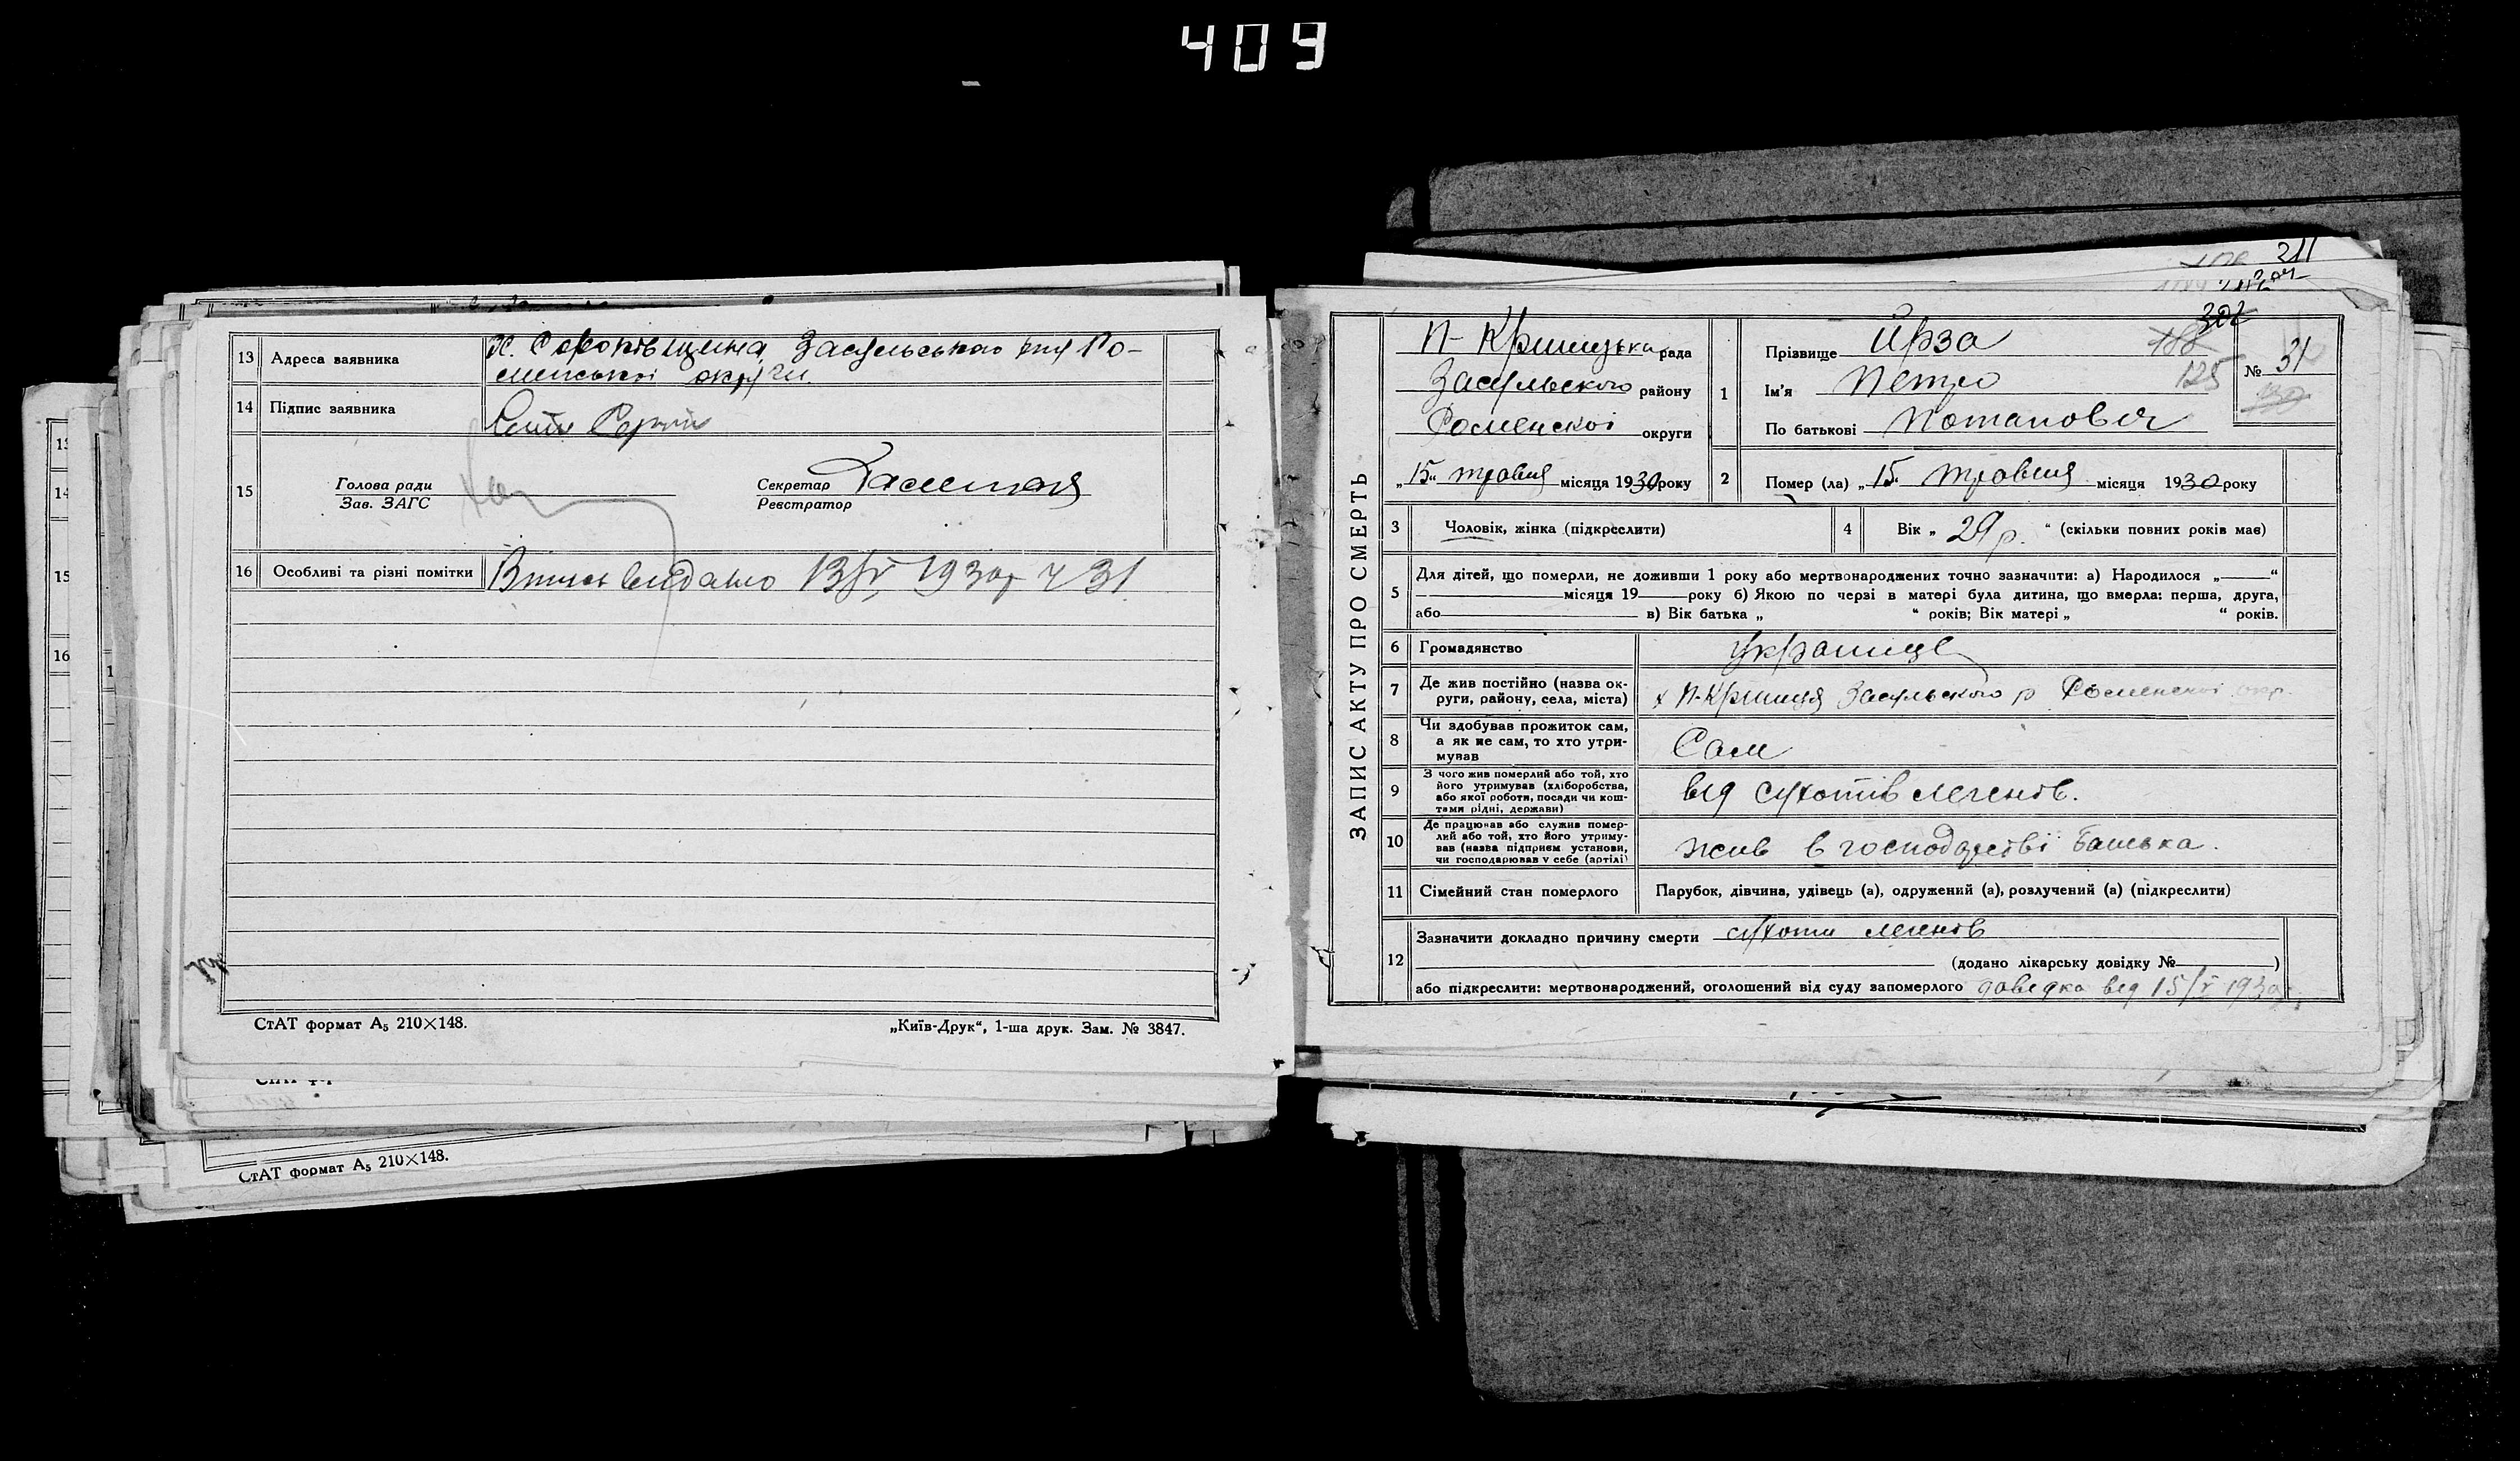 409
13 Адреса заявника Х. Сороківщина, Засульського Ро-
менської округи.
14 Підпис заявника
15 Голова ради Секретар
Зав. ЗАГС Реєстратор
16 Особливі та різні помітки видано 13/V 1930р ч 31
СтАТ формат А₅ 210×148. „Київ-Друк“, 1-ша друк. Зам. № 3847.
СтАТ формат А₅ 210×148.
13
14
15
16
211
ЗАПИС АКТУ ПРО СМЕРТЬ
П-Криницька рада
Засульского району
Роменскоі округи
„15“ травня місяця 1930 року
302
188
125
№ 31
1 Прізвище Ирза
Ім'я Петро
По батькові Потапович
2 Помер (ла) „15“ травня місяця 1930 року
3 Чоловік, жінка (підкреслити)
4 Вік „ 29 р. “ (скільки повних років мав)
5 Для дітей, що померли, не доживши 1 року або мертвонароджених точно зазначити: а) Народилося „ “
місяця 19 року б) Якою по черзі в матері була дитина, що вмерла: перша, друга,
або в) Вік батька „ “ років; Вік матері „ “ років.
6 Громадянство українце
7 Де жив постійно (назва ок-
руги, району, села, міста) х П-Криниця Засульского р Роменскоі окр.
8 Чи здобував прожиток сам,
а як не сам, то хто утри-
мував Сам
9 З чого жив померлий або той, хто
його утримував (хліборобства,
або якої роботи, посади чи кош-
тами рідні, держави) від сухотів легенів.
10 Де працював або служив помер-
лий або той, хто його утриму-
вав (назва підприєм установи,
чи господарював у себе (артілі) жив в господарстві батька.
11 Сімейний стан померлого Парубок, дівчина, удівець (а), одружений (а), розлучений (а) (підкреслити)
12 Зазначити докладно причину смерти сухоти легенів
(додано лікарську довідку № )
або підкреслити: мертвонароджений, оголошений від суду запомерлого довідка від 15/V 1930р.